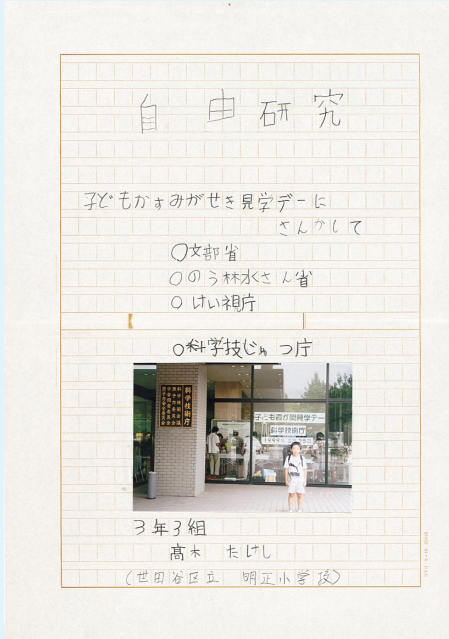 自由研究
子どもかすみがせき見学デーに
さんかして
○文部省
○のう林水さん省
○けい視庁
○科学技じゅつ庁
科学技術庁
子ども霞が関見学デー
科学技術庁
3年3組
髙木 たけし
(世田谷区立 明正小学校)